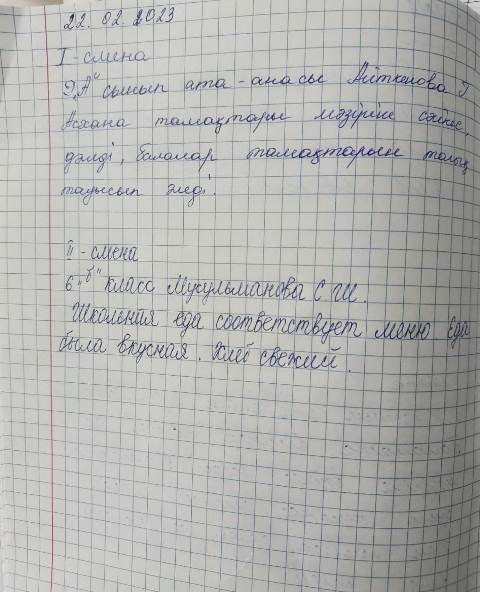 22.02.2023
I - смена
9 „А" сынып ата - анасы Айткенова Г
Асхана тамақтары мәзіріне сәйкес,
дәмді, балалар тамақтарын толық
тауысып жеді.
II - смена
6 „б" класс Мусульманова С.Ш.
Школьная еда соответствует меню Еда
была вкусная. Хлеб свежий.